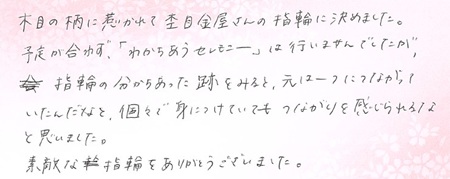 木目の柄に惹かれて杢目金屋さんの指輪に決めました。
予定が合わず、「わかちあうセレモニー」は行いませんでしたが、
指輪の分かちあった跡をみると、元は一つにつながって
いたんだなと、個々で身につけていてもつながりを感じられるな
と思いました。
素敵な指輪をありがとうございました。